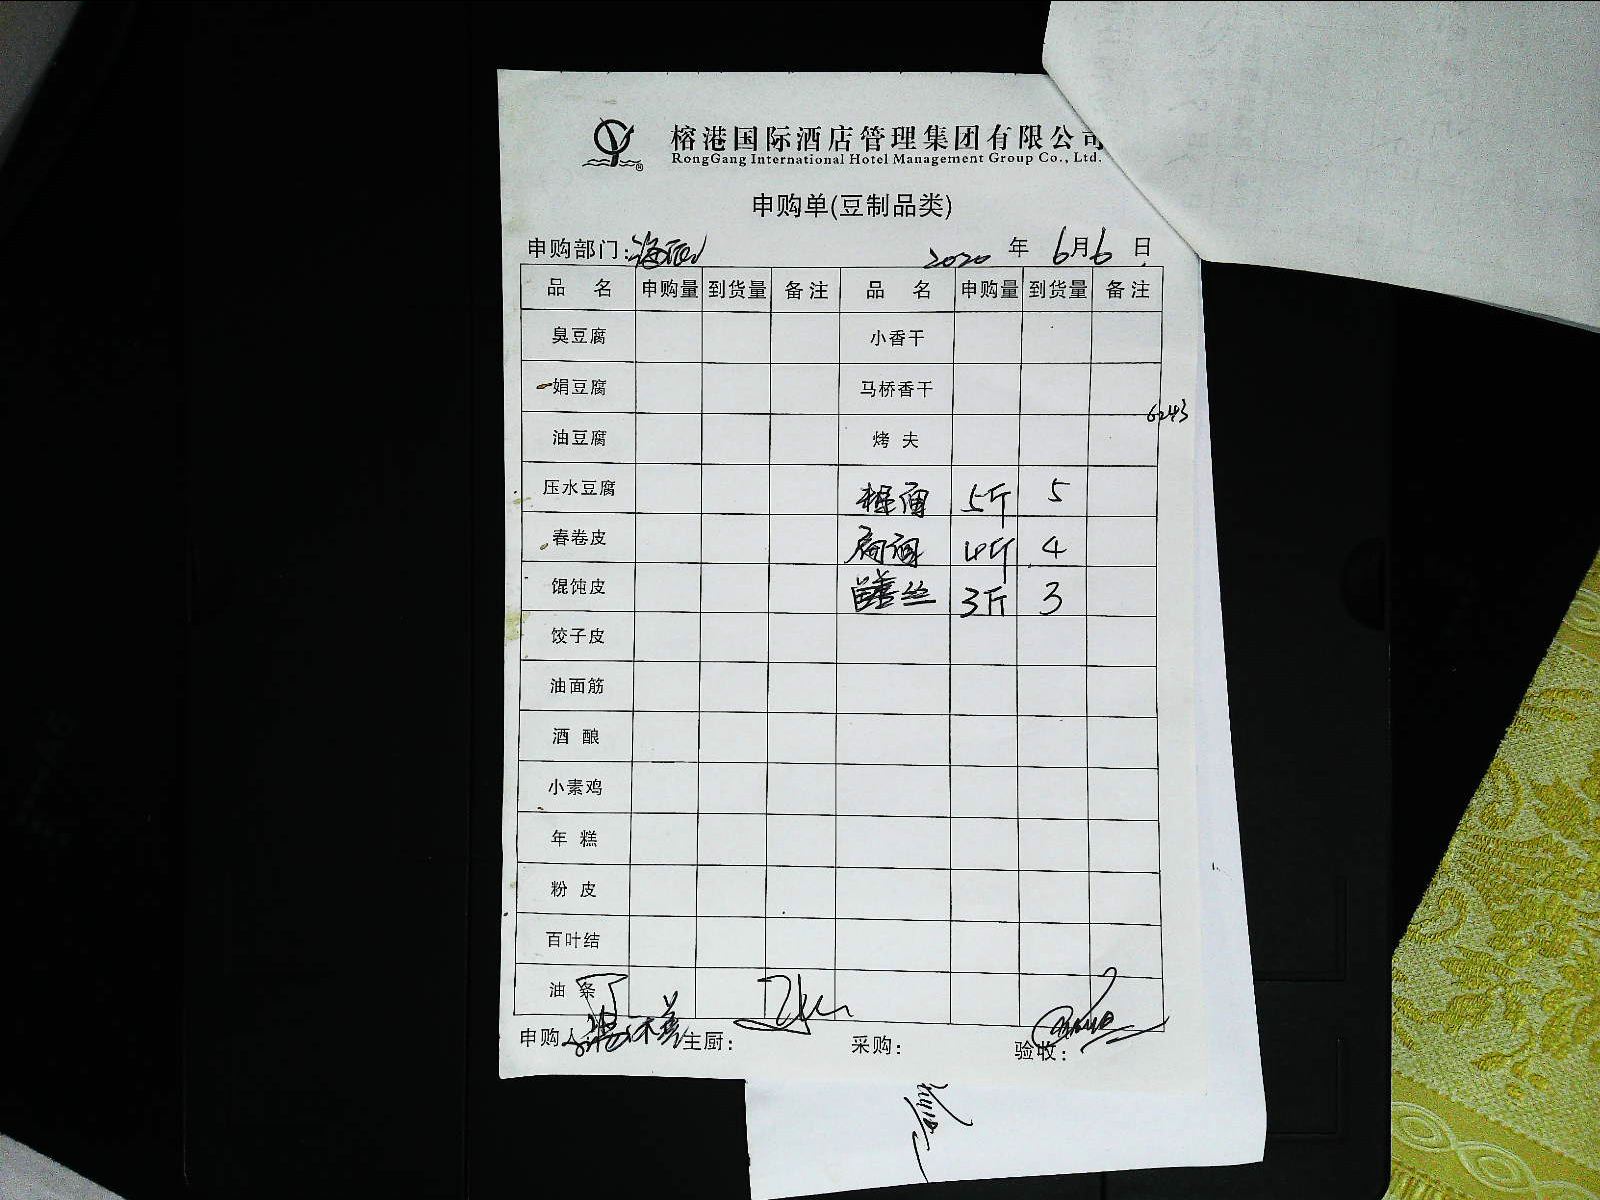 榕港国际酒店管理集团有限公司
RongGang International Hotel Management Group Co., Ltd.
申购单(豆制品类)
申购部门: 2020 年 6月6 日
品 名 申购量 到货量 备注 品 名 申购量 到货量 备注
臭豆腐 小香干
娟豆腐 马桥香干
6243
油豆腐 烤 夫
压水豆腐 粗面 5斤 5
春卷皮 4斤 4
馄饨皮 丝 3斤 3
饺子皮
油面筋
酒 酿
小素鸡
年 糕
粉 皮
百叶结
油 条
申购人 主厨: 采购: 验收: